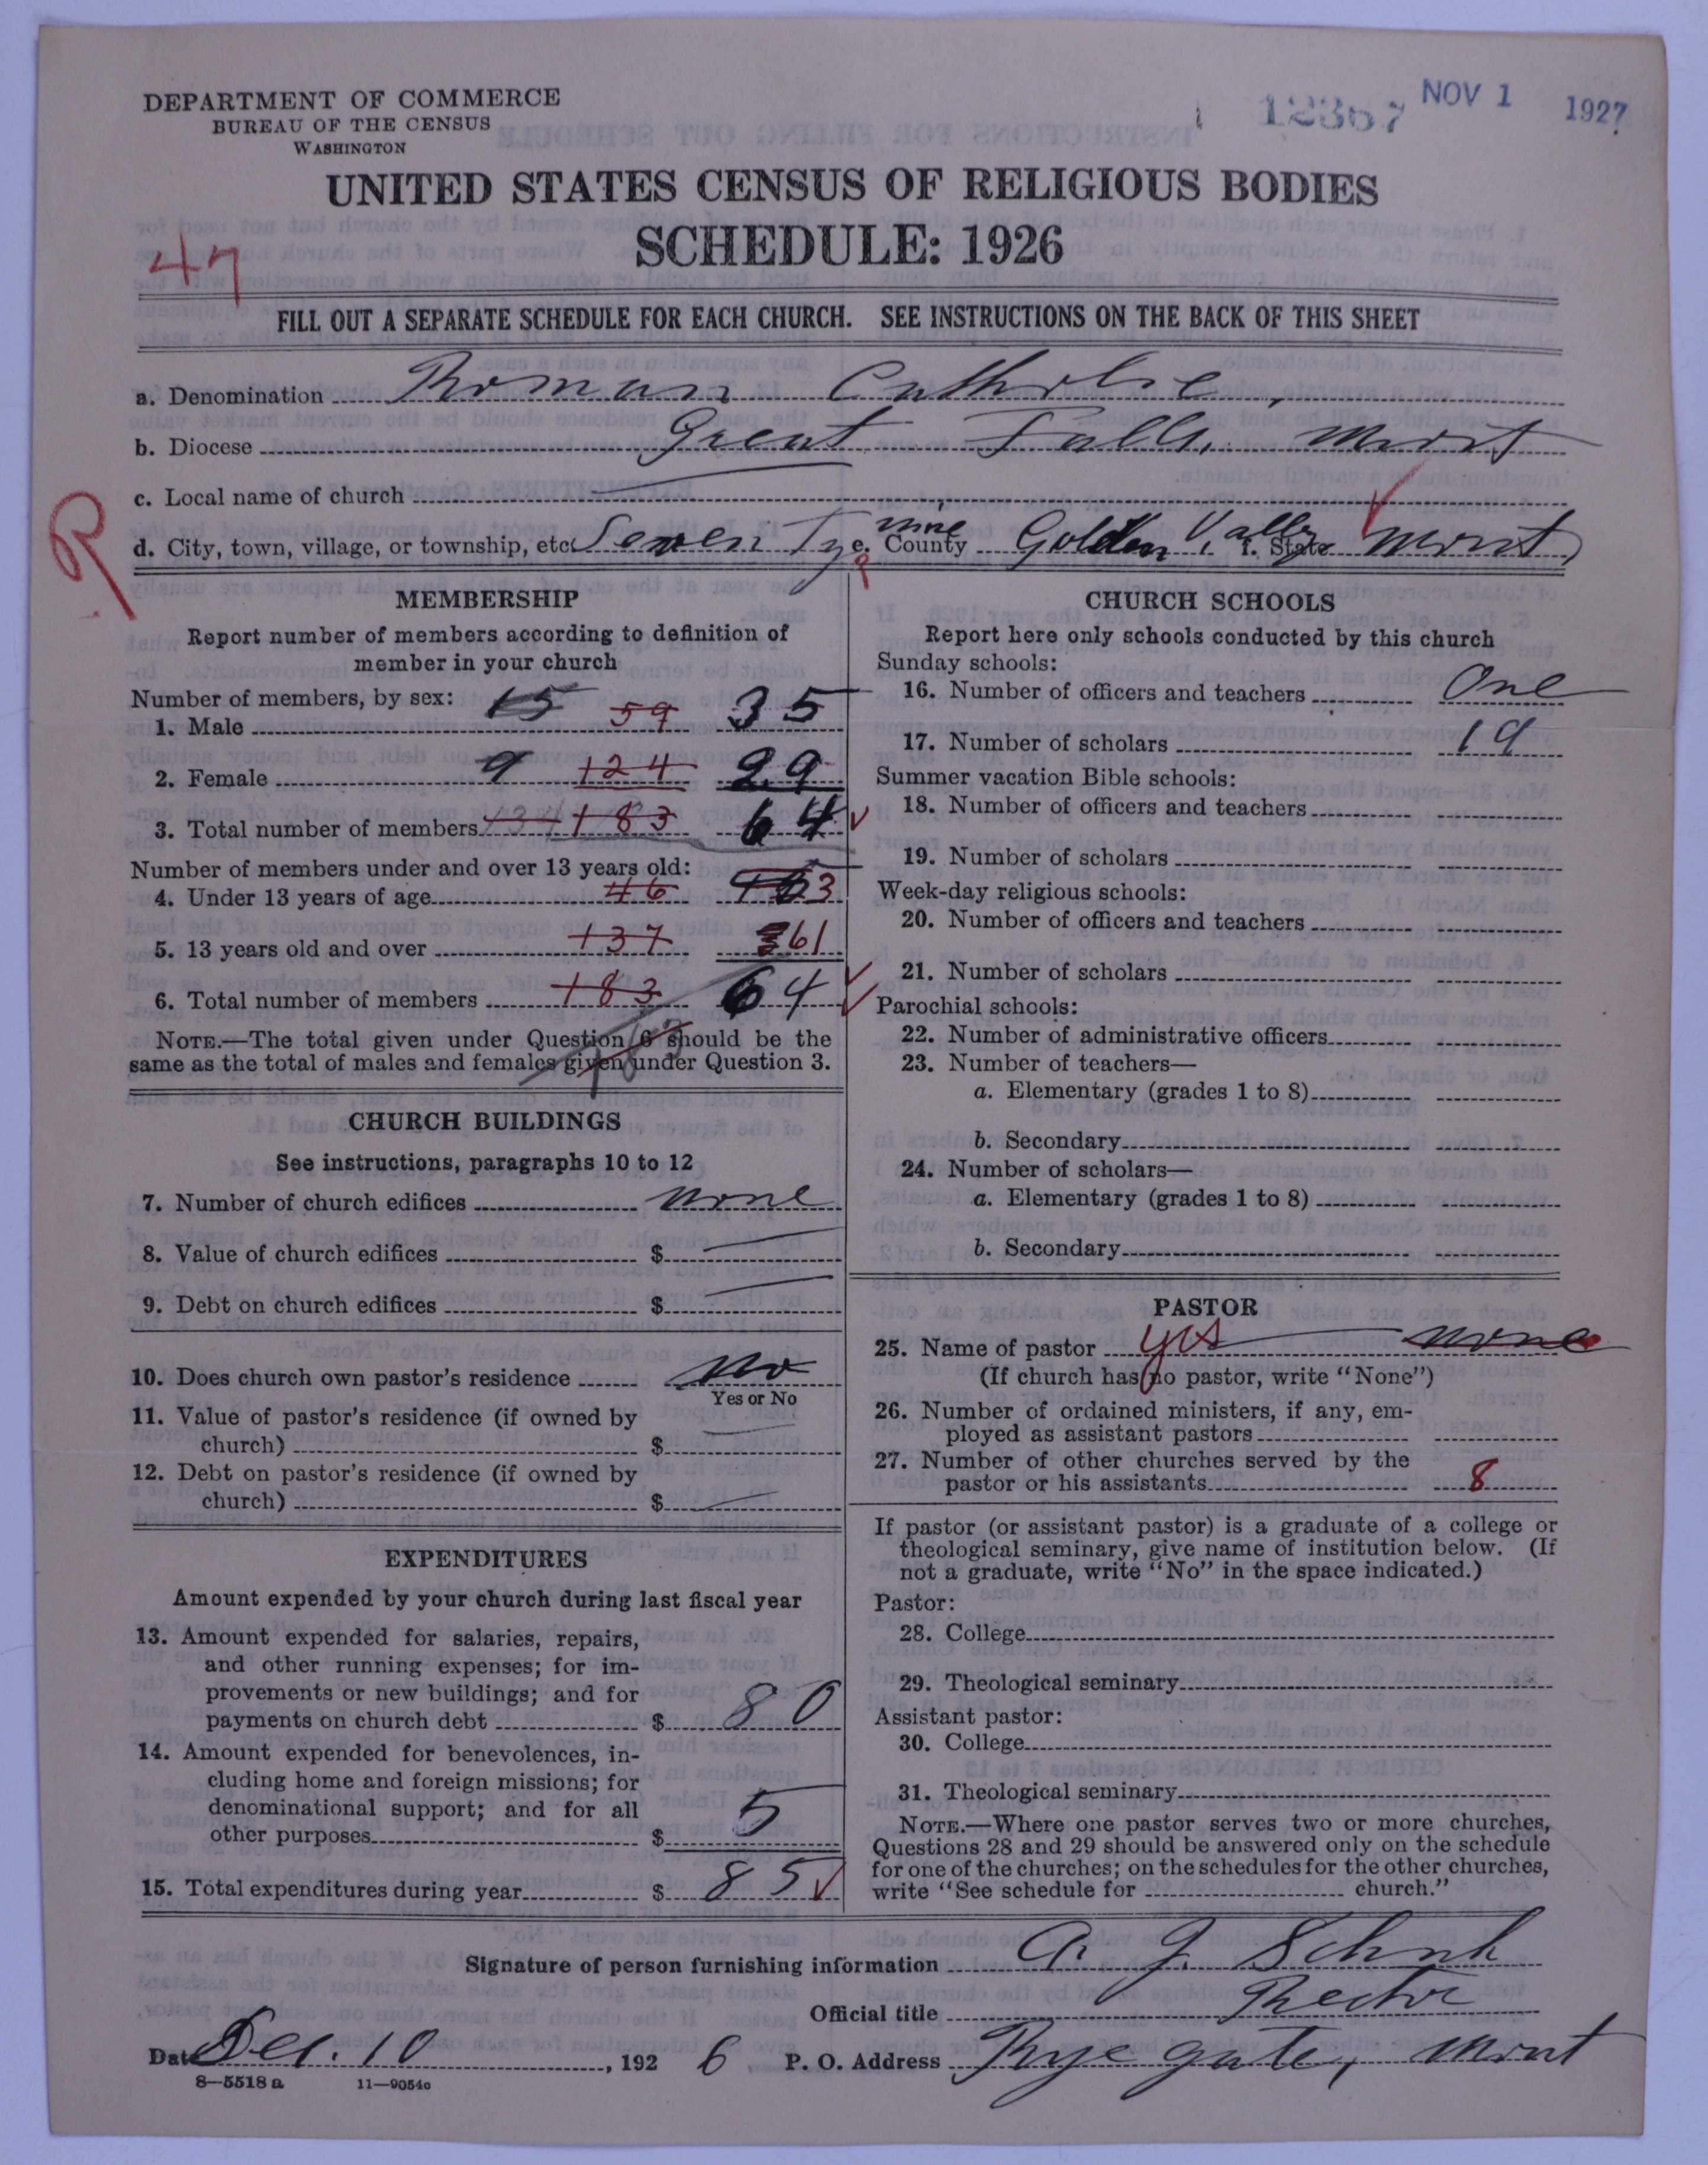 DEPARTMENT OF COMMERCE
BUREAU OF THE CENSUS
WASHINGTON
12367 NOV 1 1927
UNITED STATES CENSUS OF RELIGIOUS BODIES
SCHEDULE: 1926
47
FILL OUT A SEPARATE SCHEDULE FOR EACH CHURCH. SEE INSTRUCTIONS ON THE BACK OF THIS SHEET
a. Denomination Roman Catholic
b. Diocese Great Falls, Mont
c. Local name of church
R
d. City, town, village, or township, etc. e. County Golden Valley f. State Mont
MEMBERSHIP
Report number of members according to definition of
member in your church
Number of members, by sex:
1. Male 15 59 35
2. Female 9 124 29
3. Total number of members 134 183 64
Number of members under and over 13 years old:
4. Under 13 years of age 46 3
5. 13 years old and over 137 61
6. Total number of members 183 64
NOTE.—The total given under Question 6 should be the
same as the total of males and females given under Question 3.
CHURCH BUILDINGS
See instructions, paragraphs 10 to 12
7. Number of church edifices none
8. Value of church edifices $
9. Debt on church edifices $
10. Does church own pastor's residence No
Yes or No
11. Value of pastor's residence (if owned by
church) $
12. Debt on pastor's residence (if owned by
church) $
EXPENDITURES
Amount expended by your church during last fiscal year
13. Amount expended for salaries, repairs,
and other running expenses; for im-
provements or new buildings; and for
payments on church debt $ 80
14. Amount expended for benevolences, in-
cluding home and foreign missions; for
denominational support; and for all
other purposes $ 5
15. Total expenditures during year $ 85
CHURCH SCHOOLS
Report here only schools conducted by this church
Sunday schools:
16. Number of officers and teachers One
17. Number of scholars 19
Summer vacation Bible schools:
18. Number of officers and teachers
19. Number of scholars
Week-day religious schools:
20. Number of officers and teachers
21. Number of scholars
Parochial schools:
22. Number of administrative officers
23. Number of teachers—
a. Elementary (grades 1 to 8)
b. Secondary
24. Number of scholars—
a. Elementary (grades 1 to 8)
b. Secondary
PASTOR
25. Name of pastor yes none
(If church has no pastor, write "None")
26. Number of ordained ministers, if any, em-
ployed as assistant pastors
27. Number of other churches served by the
pastor or his assistants 8
If pastor (or assistant pastor) is a graduate of a college or
theological seminary, give name of institution below. (If
not a graduate, write "No" in the space indicated.)
Pastor:
28. College
29. Theological seminary
Assistant pastor:
30. College
31. Theological seminary
NOTE.—Where one pastor serves two or more churches,
Questions 28 and 29 should be answered only on the schedule
for one of the churches; on the schedules for the other churches,
write "See schedule for church."
Signature of person furnishing information
Official title Rector
Date Dec. 10, 1926 P. O. Address Ryegate, Mont
8—5518 a 11—9054o